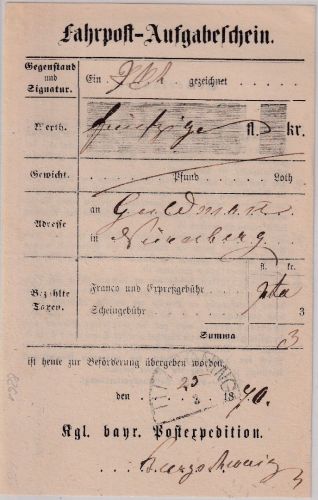 Fahrpost-Aufgabeschein.
Gegenstand und Signatur. Ein gezeichnet
Werth. fl. kr.
Gewicht. Pfund Loth
Adresse an Guldmann
in Nürnberg
fl. kr.
Bezahlte Taxen. Franco und Expreßgebühr
Scheingebühr 3
Summa 3
ist heute zur Beförderung übergeben worden.
den 25 1870.
Kgl. bayr. Postexpedition.